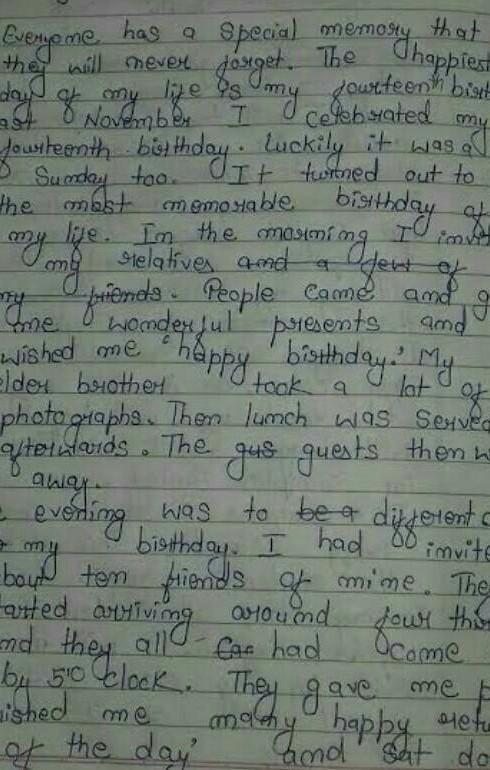 Everyone has a special memory that
they will never forget. The happiest
day of my life is my fourteenth birt
ast November I celebrated my
fourteenth birthday. Luckily it was a
Sunday too. It turned out to
the most memorable birthday of
my life. In the morning I invi
my relatives and a few of
my friends. People came and g
me wonderful presents and
wished me 'happy birthday.' My
elder brother took a lot of
photographs. Then lunch was served
afterwards. The gus guests then w
away.
evening was to be a different
my birthday. I had invite
bout ten friends of mine. The
tarted arriving around four thi
nd they all had come
by 5'0 clock. They gave me p
ished me many happy retu
of the day' and sat do